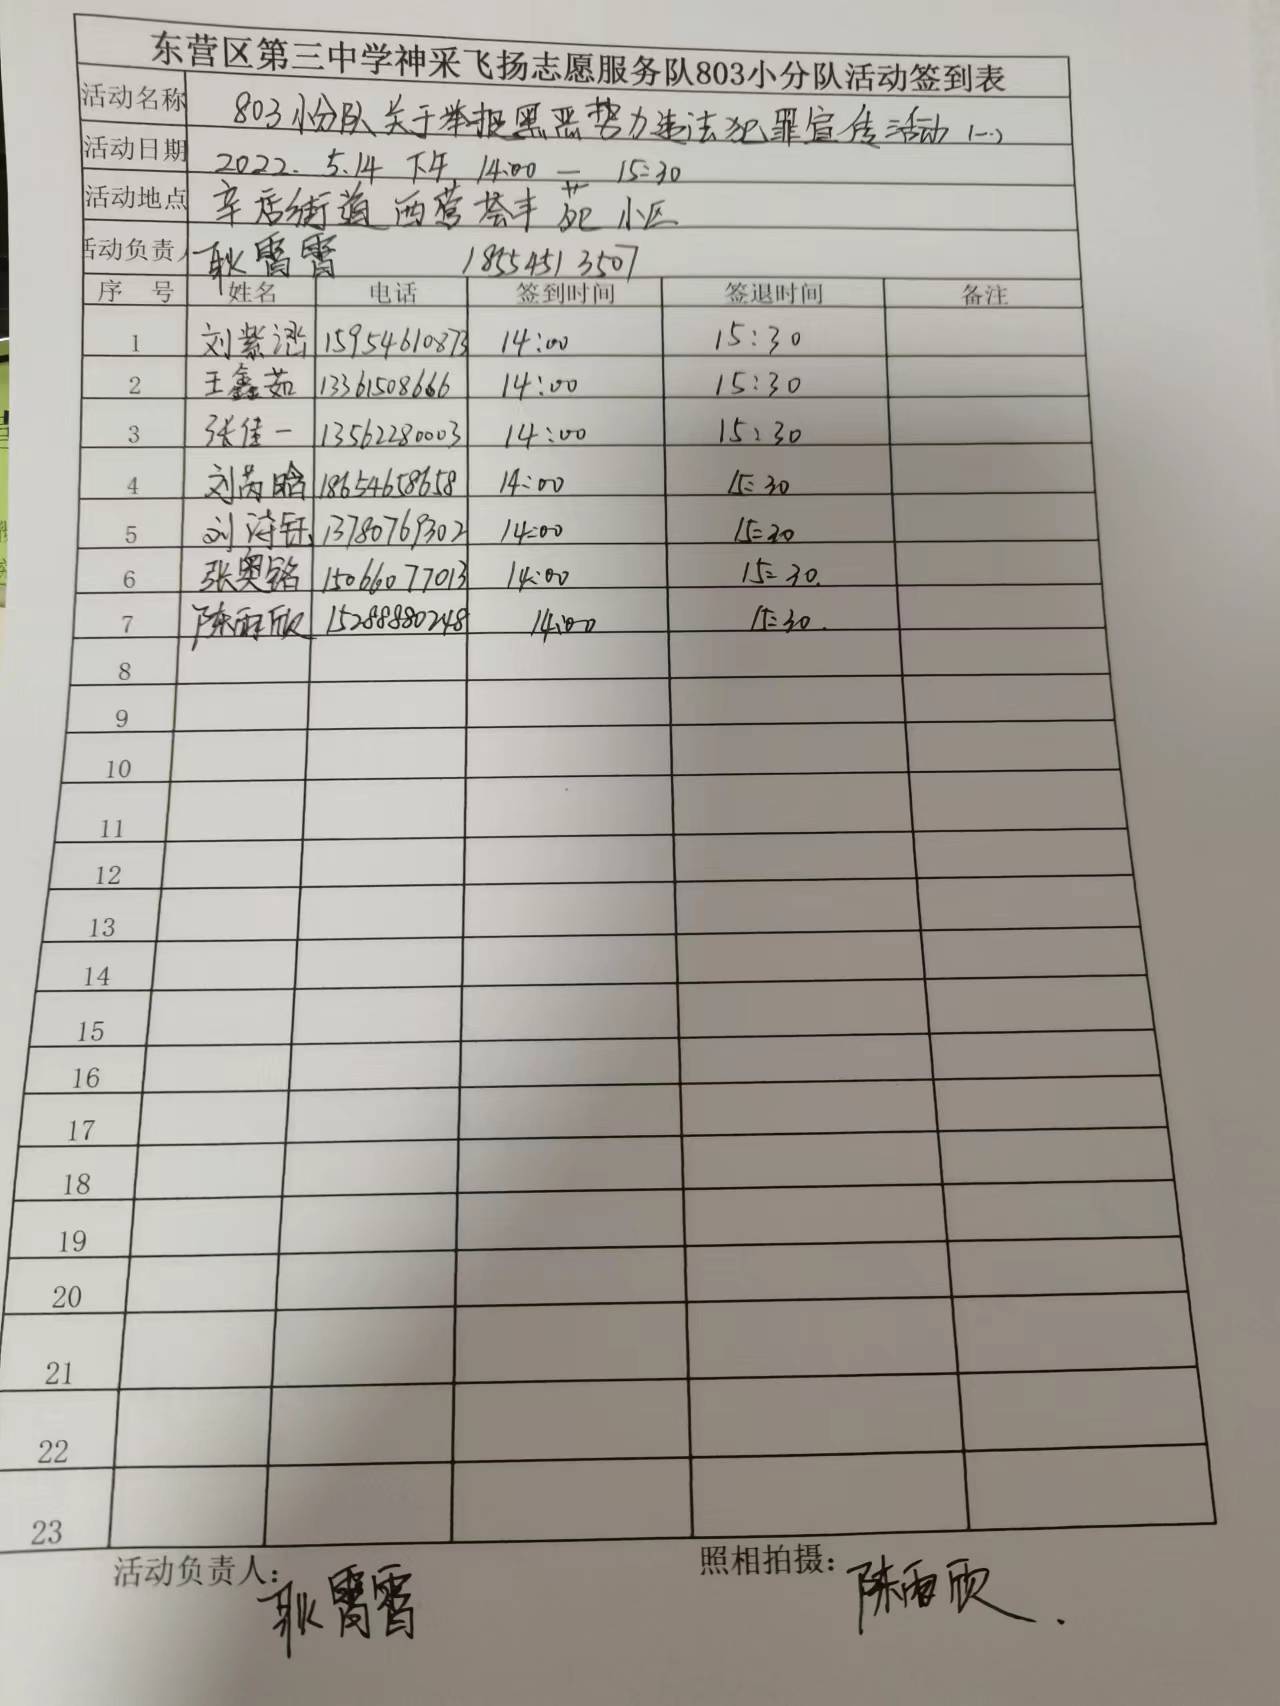 东营区第三中学神采飞扬志愿服务队803小分队活动签到表
活动名称 803小分队关于举报黑恶势力违法犯罪宣传活动(一)
活动日期 2022.5.14 下午 14:00 — 15:30
活动地点 辛店街道西营荟丰苑小区
活动负责人 耿霄霄 18554513507
序 号 姓名 电话 签到时间 签退时间 备注
1 刘紫 15954610873 14:00 15:30
2 王鑫茹 13361508666 14:00 15:30
3 张佳一 13562280003 14:00 15:30
4 刘芮晗 18654658658 14:00 15:30
5 刘诗钰 13780769302 14:00 15:30
6 张奥铭 15066077013 14:00 15:30.
7 陈雨欣 15288880248 14:00 15:30.
8
9
10
11
12
13
14
15
16
17
18
19
20
21
22
23
活动负责人: 耿霄霄 照相拍摄: 陈雨欣.